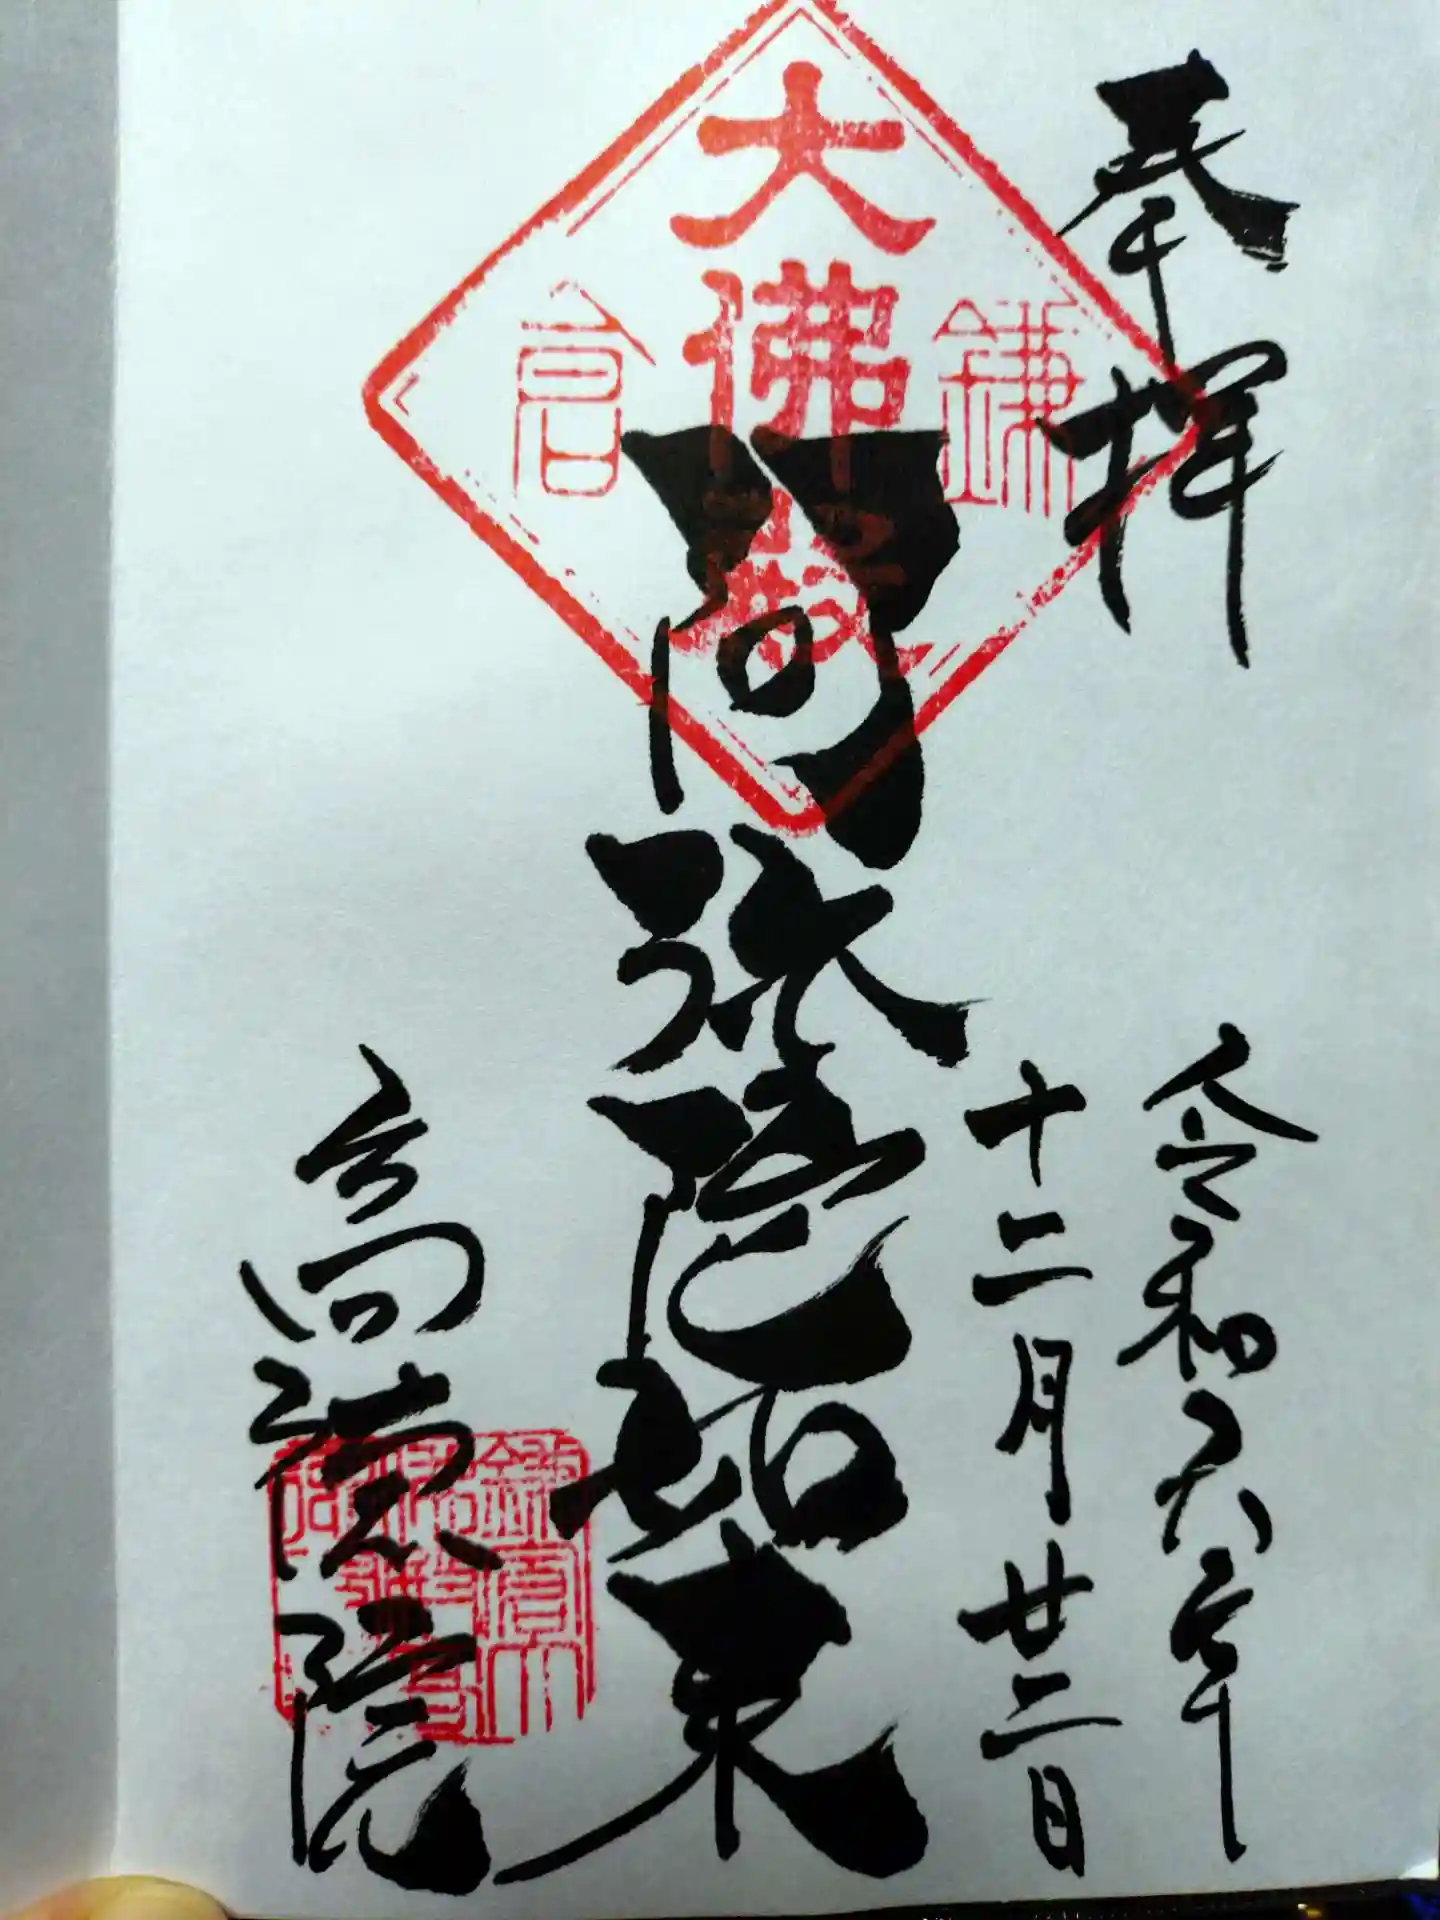 奉拝
令和六年
十二月廿二日
鎌倉
大佛殿
阿弥陀如来
高徳院